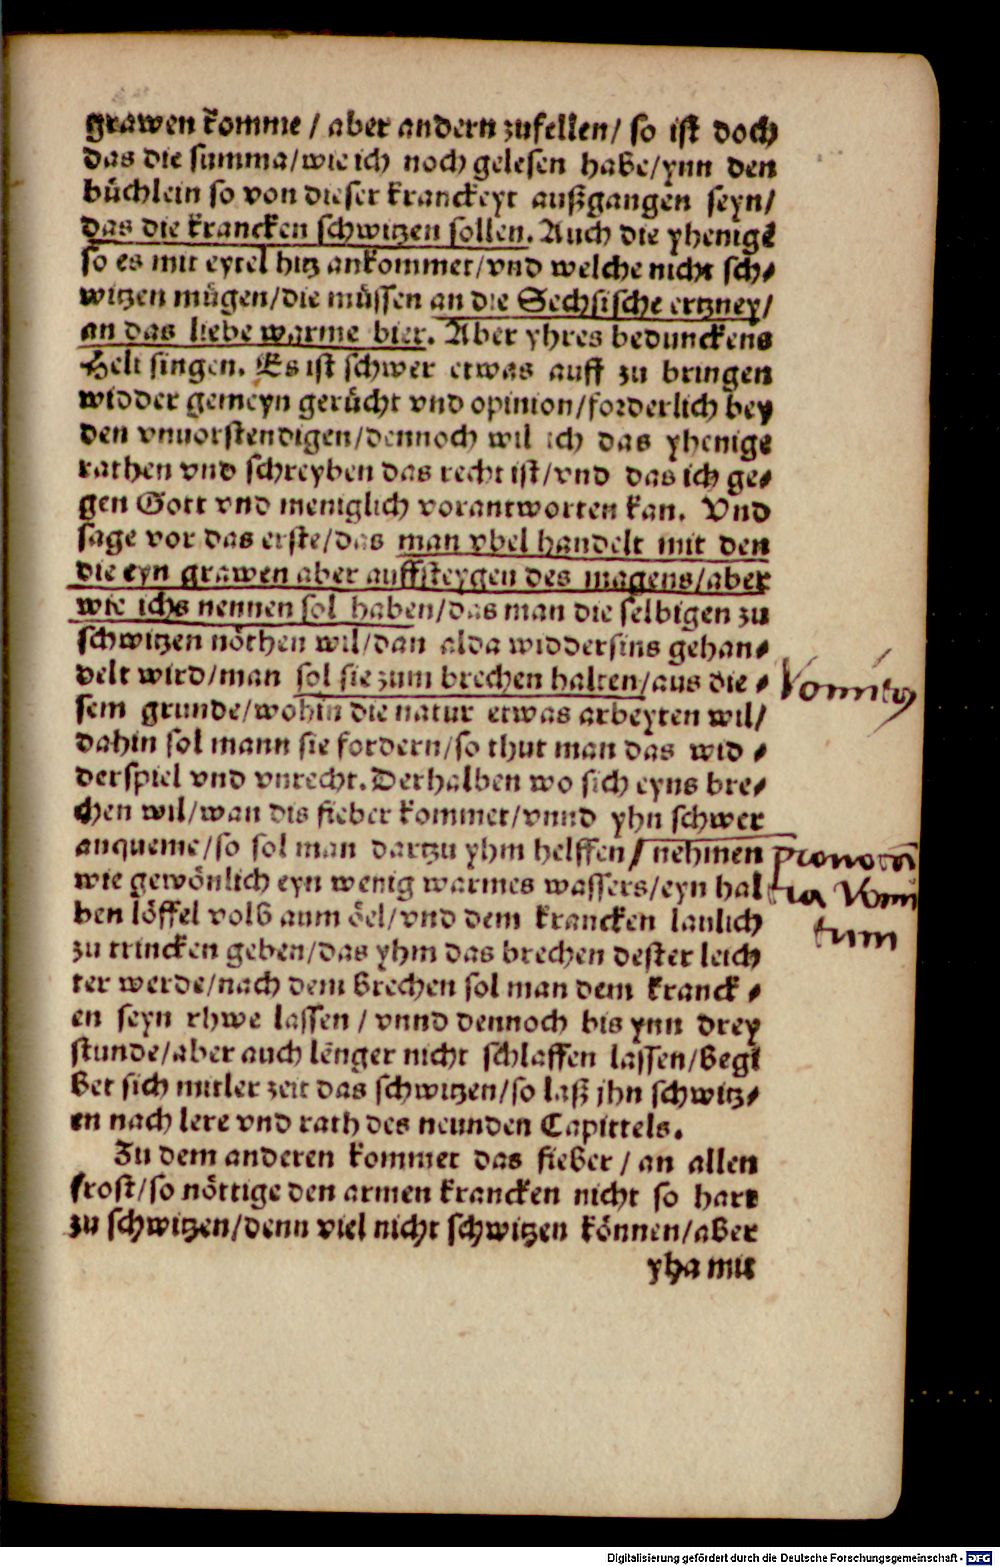 grawen komme / aber andern zufellen/ so ist doch
das die summa/wie ich noch gelesen habe/ynn den
büchlein so von dieser kranckeyt außgangen seyn/
das die krancken schwitzen sollen. Auch die yhenige
so es mit eytel hitz ankommet/vnd welche nicht sch⸗
witzen mügen/die müssen an die Sechsische ertzney/
an das liebe warme bier. Aber yhres bedunckens
Helt singen. Es ist schwer etwas auff zu bringen
widder gemeyn gerücht vnd opinion/forderlich bey
den vnuorstendigen/dennoch wil ich das yhenige
rathen vnd schreyben das recht ist/vnd das ich ge⸗
gen Gott vnd meniglich vorantworten kan. Vnd
sage vor das erste/das man vbel handelt mit den
die eyn grawen aber auffsteygen des magens/aber
wie ichs nennen sol haben/das man die selbigen zu
schwitzen nöthen wil/dan alda widdersins gehan⸗
delt wird/man sol sie zum brechen halten/aus die⸗ Vomitus
sem grunde/wohin die natur etwas arbeyten wil/
dahin sol mann sie fordern/so thut man das wid⸗
derspiel vnd vnrecht. Derhalben wo sich eyns bre⸗
chen wil/wan dis fieber kommet/vnnd yhn schwer
anqueme/so sol man dartzu yhm helffen/ nehmen
wie gewönlich eyn wenig warmes wassers/eyn hal
ben löffel volß aum öel/vnd dem krancken laulich
tum
zu trincken geben/das yhm das brechen dester leich
ter werde/nach dem brechen sol man dem kranck⸗
en seyn rhwe lassen / vnnd dennoch bis ynn drey
stunde/aber auch lenger nicht schlaffen lassen/begi
bet sich mitler zeit das schwitzen/so laß jhn schwitz⸗
en nach lere vnd rath des neunden Capittels.
Zu dem anderen kommet das fieber / an allen
frost/so nöttige den armen krancken nicht so hart
zu schwitzen/denn viel nicht schwitzen können/aber
yha mit
Digitalisierung gefördert durch die Deutsche Forschungsgemeinschaft - DFG